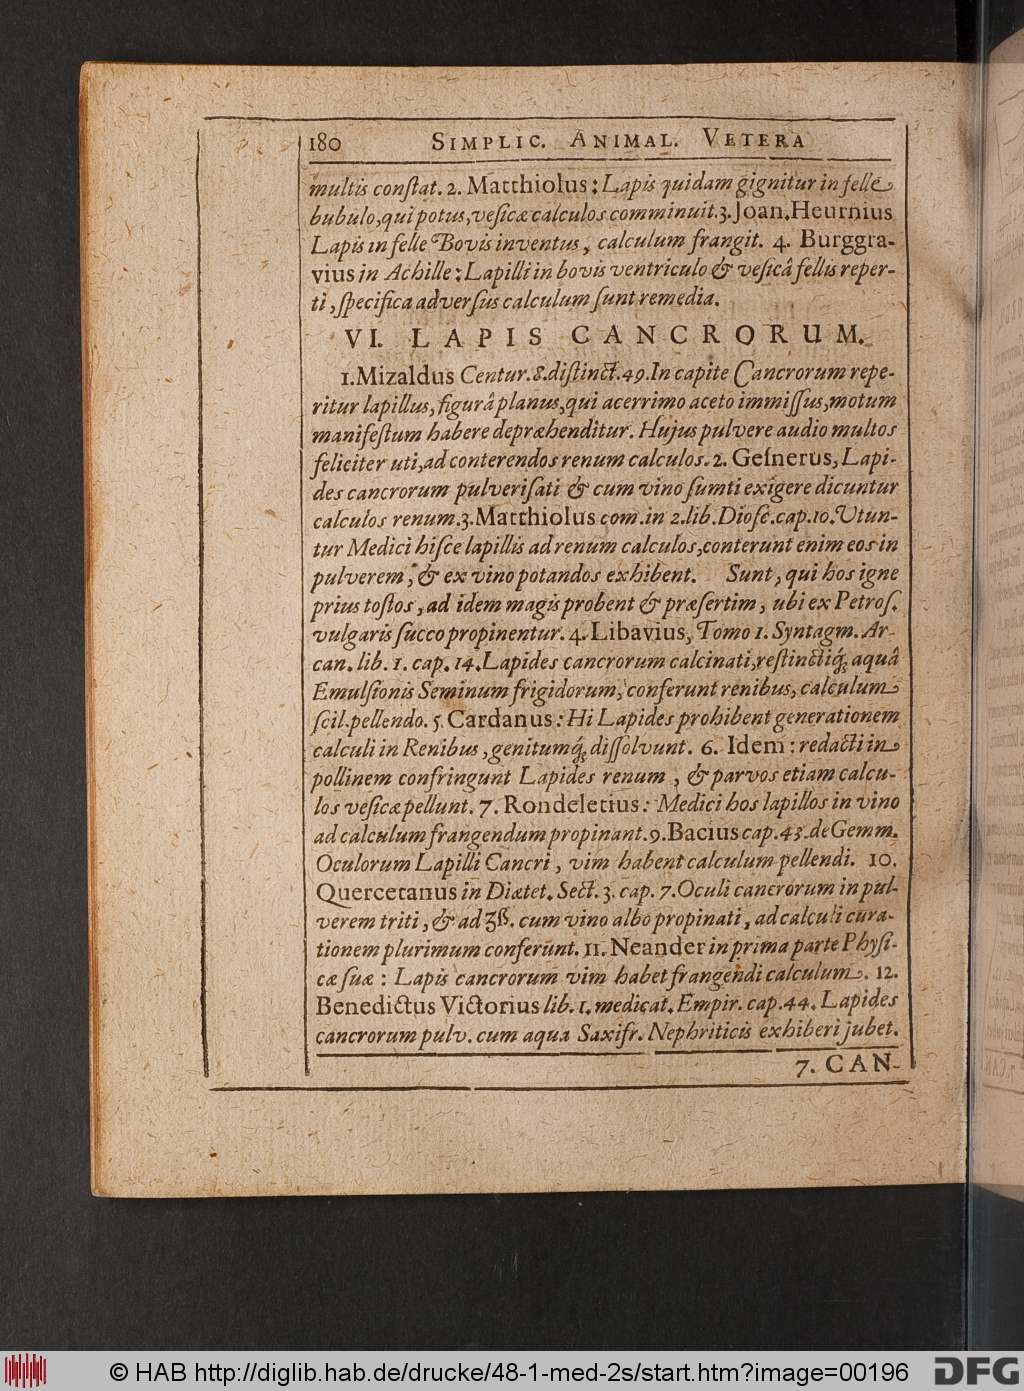 180 SIMPLIC. ANIMAL. VETERA
multis conſtat. 2. Matthiolus: Lapis quidam gignitur in felle
bubulo, qui potus, veſicæ calculos comminuit. 3. Joan. Heurnius
Lapis in felle Bovis inventus, calculum frangit. 4. Burggra-
vius in Achille: Lapilli in bovis ventriculo & veſicâ fellis reper-
ti, ſpecifica adverſus calculum ſunt remedia.
VI. LAPIS CANCRORUM.
1. Mizaldus Centur. 8. diſtinct. 49. In capite Cancrorum repe-
ritur lapillus, figurâ planus, qui acerrimo aceto immiſſus, motum
manifeſtum habere depræhenditur. Hujus pulvere audio multos
feliciter uti, ad conterendos renum calculos. 2. Geſnerus, Lapi-
des cancrorum pulveriſati & cum vino ſumti exigere dicuntur
calculos renum. 3. Matthiolus com. in 2. lib. Dioſc. cap. 10. Utun-
tur Medici hiſce lapillis ad renum calculos, conterunt enim eos in
pulverem, & ex vino potandos exhibent. Sunt, qui hos igne
prius toſtos, ad idem magis probent & præſertim, ubi ex Petroſ.
vulgaris ſucco propinentur. 4. Libavius, Tomo 1. Syntagm. Ar-
can. lib. 1. cap. 14. Lapides cancrorum calcinati, reſtinctiq́; aquâ
Emulſionis Seminum frigidorum, conferunt renibus, calculum
ſcil. pellendo. 5. Cardanus: Hi Lapides prohibent generationem
calculi in Renibus, genitumq́; diſſolvunt. 6. Idem: redacti in
pollinem confringunt Lapides renum, & parvos etiam calcu-
los veſicæ pellunt. 7. Rondeletius: Medici hos lapillos in vino
ad calculum frangendum propinant. 9. Bacius cap. 43. de Gemm.
Oculorum Lapilli Cancri, vim habent calculum pellendi. 10.
Quercetanus in Diætet. Sect. 3. cap. 7. Oculi cancrorum in pul-
verem triti, & ad ʒß. cum vino albo propinati, ad calculi cura-
tionem plurimum conferunt. 11. Neander in prima parte Phyſi-
cæ ſuæ: Lapis cancrorum vim habet frangendi calculum. 12.
Benedictus Victorius lib. 1. medicat. Empir. cap. 44. Lapides
cancrorum pulv. cum aqua Saxifr. Nephriticis exhiberi jubet.
7. CAN-
© HAB http://diglib.hab.de/drucke/48-1-med-2s/start.htm?image=00196
DFG